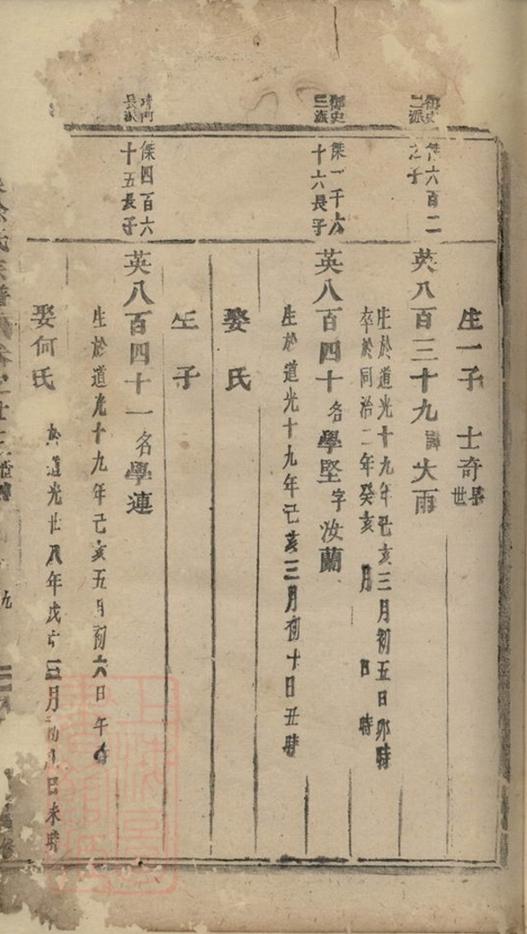 生一子 士奇
御史
二派
傑六百二
之子
英八百三十九諱大雨
生於道光十九年己亥三月初五日卯時
卒於同治二年癸亥 月 日 時
御史
三派
傑一千六
十六長子
英八百四十名學堅字汝蘭
生於道光十九年己亥三月初十日丑時
娶 氏
生 子
長派
傑四百六
十五長子
英八百四十一名學連
生於道光十九年己亥五月初六日午時
娶何氏
於道光廿八年戊 三月 巳未時
九